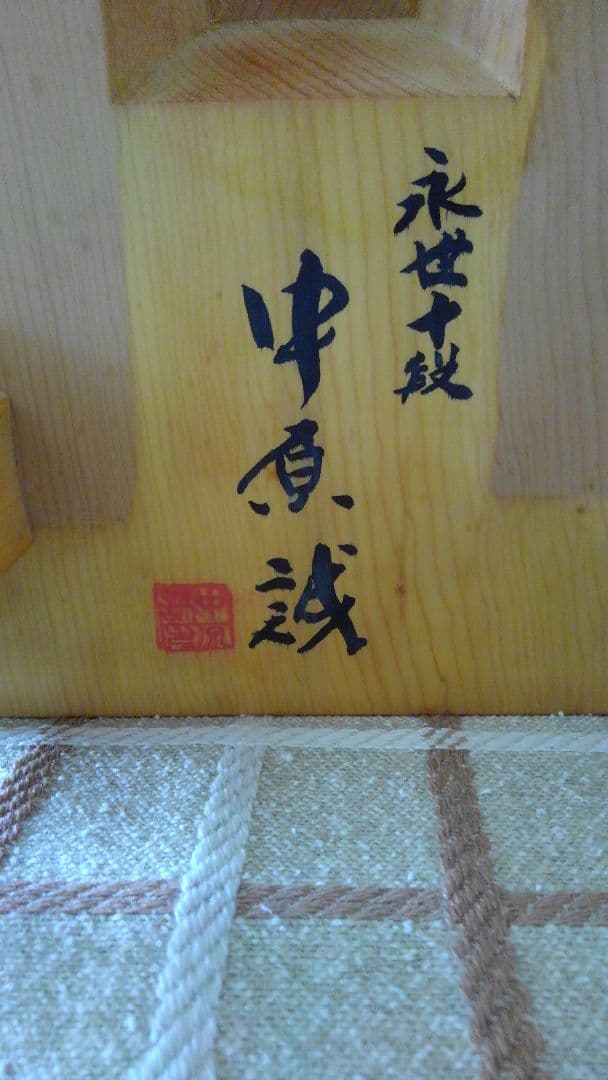 永世十段
中原誠
中原誠印